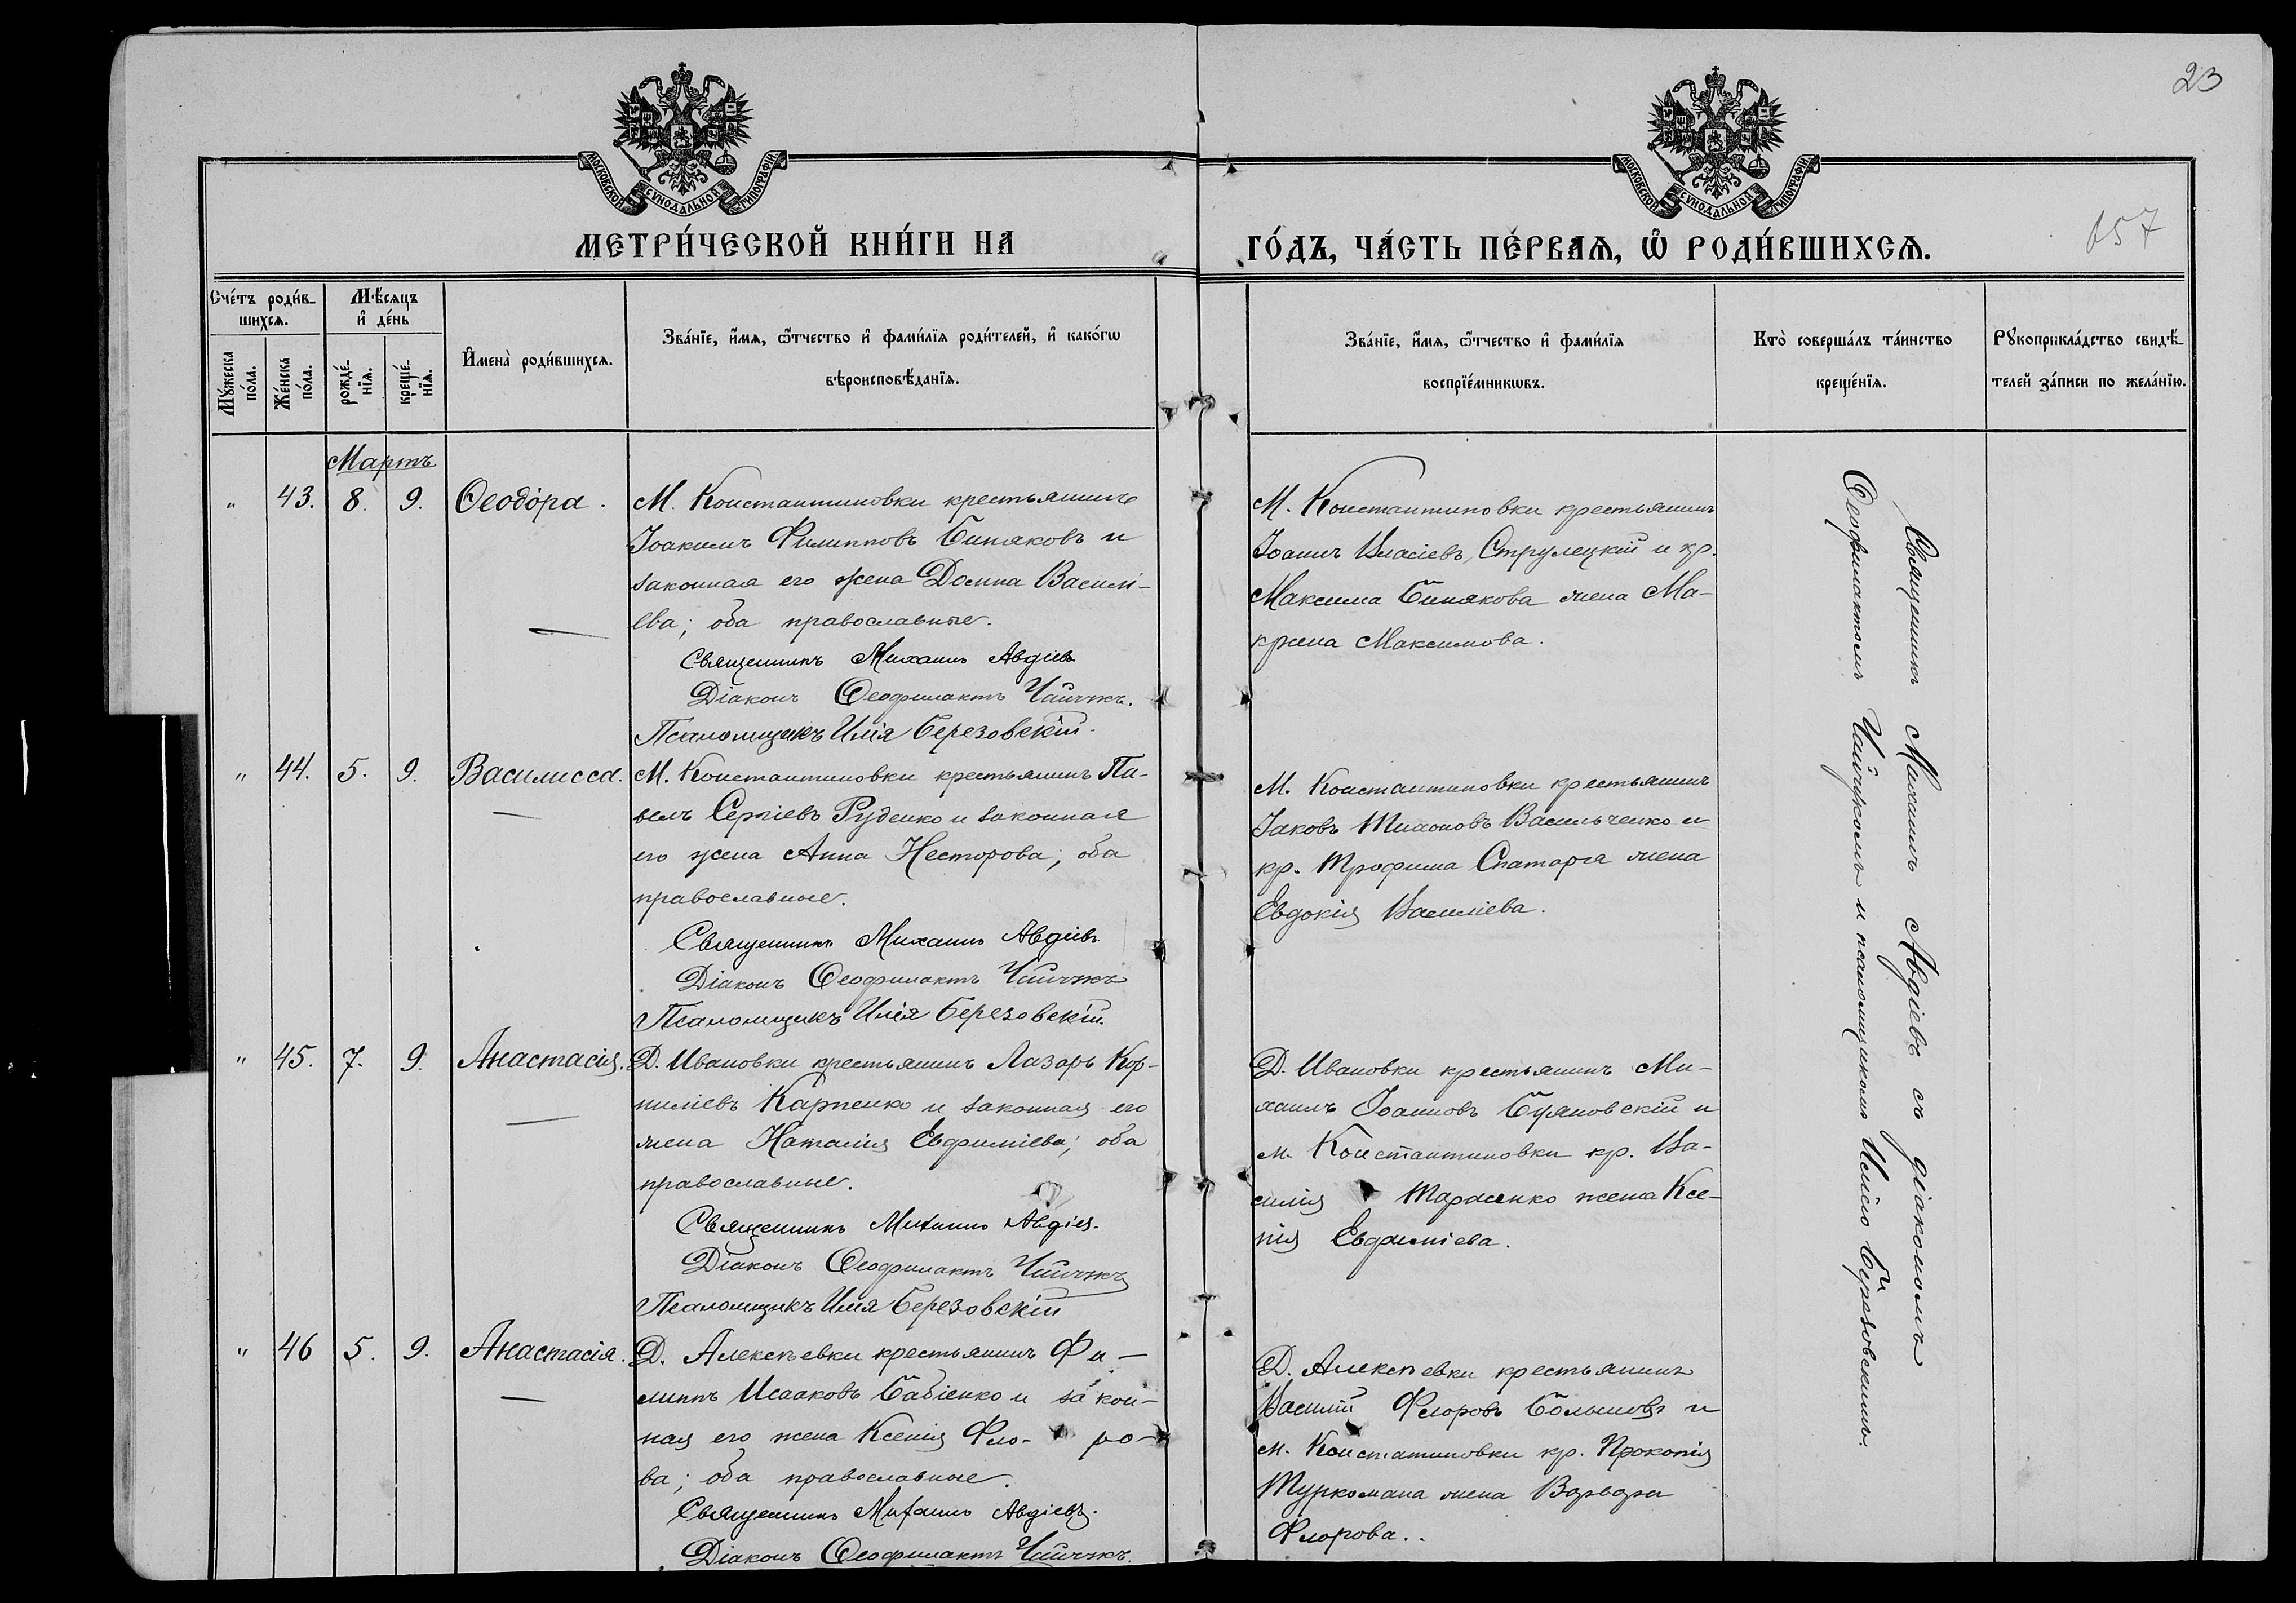 23
МОСКОВСКОЙ СѴНОДАЛЬНОЙ ТИПОГРАФІИ
МОСКОВСКОЙ СѴНОДАЛЬНОЙ ТИПОГРАФІИ
МЕТРИ́ЧЕСКОЙ КНИ́ГИ НА
ГО́ДЪ, ЧА́СТЬ ПЕ́РВАЯ, Ѡ҆ РОДИ́ВШИХСЯ.
657
Сче́тъ роди́в-
шихсѧ.
Мѣ́сяцъ
и҆ де́нь
Мꙋ́жеска
по́ла.
Же́нска
по́ла.
рожде́-
нїѧ.
креще́-
нїѧ.
И҆мена̀ роди́вшихсѧ.
Зва́нїе, и҆́мѧ, ѻ҆́тчество и҆ фами́лїѧ роди́телей, и҆ како́гѡ
вѣроисповѣ́данїѧ.
Зва́нїе, и҆́мѧ, ѻ҆́тчество и҆ фами́лїѧ
воспрїе́мникѡвъ.
Кто̀ соверша́лъ та́инство
креще́нїѧ.
Рꙋкоприкла́дство свидѣ́-
телей за́писи по жела́нїю.
Мартъ
" 43. 8. 9. Ѳеодора.
М. Константиновки крестьянинъ
Іоакимъ Филипповъ Биняковъ и
законная его жена Домна Василі-
ева; оба православные.
Священникъ Михаилъ Авдіевъ
Діаконъ Ѳеофилактъ Чайчукъ.
Псаломщикъ Илія Березовскій.
М. Константиновки крестьянинъ
Іоаннъ Власіевъ Струлецкій и кр.
Максима Бинякова жена Ма-
крина Максимова.
" 44. 5. 9. Василисса.
М. Константиновки крестьянинъ Па-
велъ Сергіевъ Руденко и законная
его жена Анна Несторова; оба
православные.
Священникъ Михаилъ Авдіевъ
Діаконъ Ѳеофилактъ Чайчукъ
Псаломщикъ Илія Березовскій.
М. Константиновки крестьянинъ
Іаковъ Тихоновъ Васильченко и
кр. Трофима Спатаря жена
Евдокія Василіева.
" 45. 7. 9. Анастасія.
Д. Ивановки крестьянинъ Лазарь Кор-
ниліевъ Карпенко и законная его
жена Наталія Евфиміева; оба
православные.
Священникъ Михаилъ Авдіев.
Діаконъ Ѳеофилактъ Чайчукъ
Псаломщикъ Илія Березовскій
Д. Ивановки крестьянинъ Ми-
хаилъ Іоанновъ Буяновскій и
м. Константиновки кр. Ва-
силія Тарасенко жена Ксе-
нія Евфиміева.
" 46 5. 9. Анастасія.
Д. Алексѣевки крестьянинъ Фи-
липпъ Исааковъ Бабіенко и закон-
ная его жена Ксенія Фло-ро-
ва; оба православные.
Священникъ Михаилъ Авдіевъ.
Діаконъ Ѳеофилактъ Чайчукъ.
Д. Алексѣевки крестьянинъ
Василій Флоровъ и
м. Константиновки кр. Прокопія
Туркомана жена Варвара
Флорова.
Священникъ Михаилъ Авдіевъ съ діакономъ
Ѳеофилактомъ Чайчукомъ и псаломщикомъ Иліею Березовскимъ.